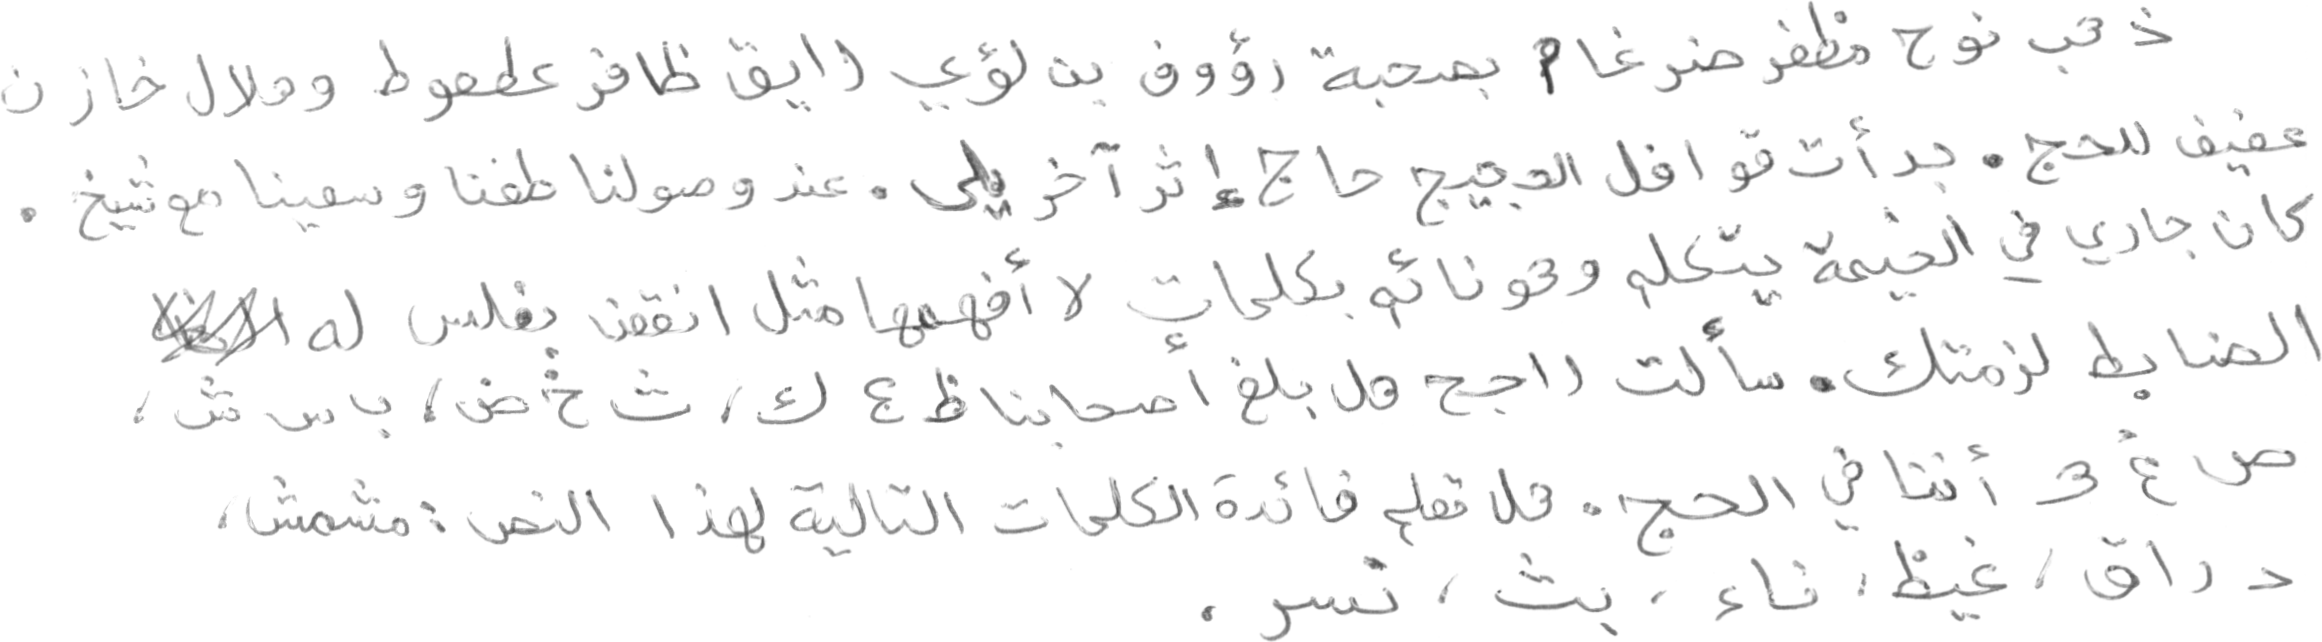 ذهب نوح مظفر ضرغام بصحبة رؤوف بن لؤي رايق ظافر عطعوط وهلال خازن
عفيف للحج. بدأت قوافل الحجيج حاج إثر آخر يلي. عند وصولنا طفنا وسعينا مع شيخ.
كان جاري في الخيمة يتكلم وهو نائم بكلمات لا أفهمها مثل انقض بغلس له
الضابط لزمتك. سألت راجح هل بلغ أصحابنا ظ ع ك، ث خ ض، ب س ش،
ص غ ه أننا في الحج. هلا تعلم فائدة الكلمات التالية لهذا النص: مشمش،
دراق، غيظ، ناء، بث، نسر.